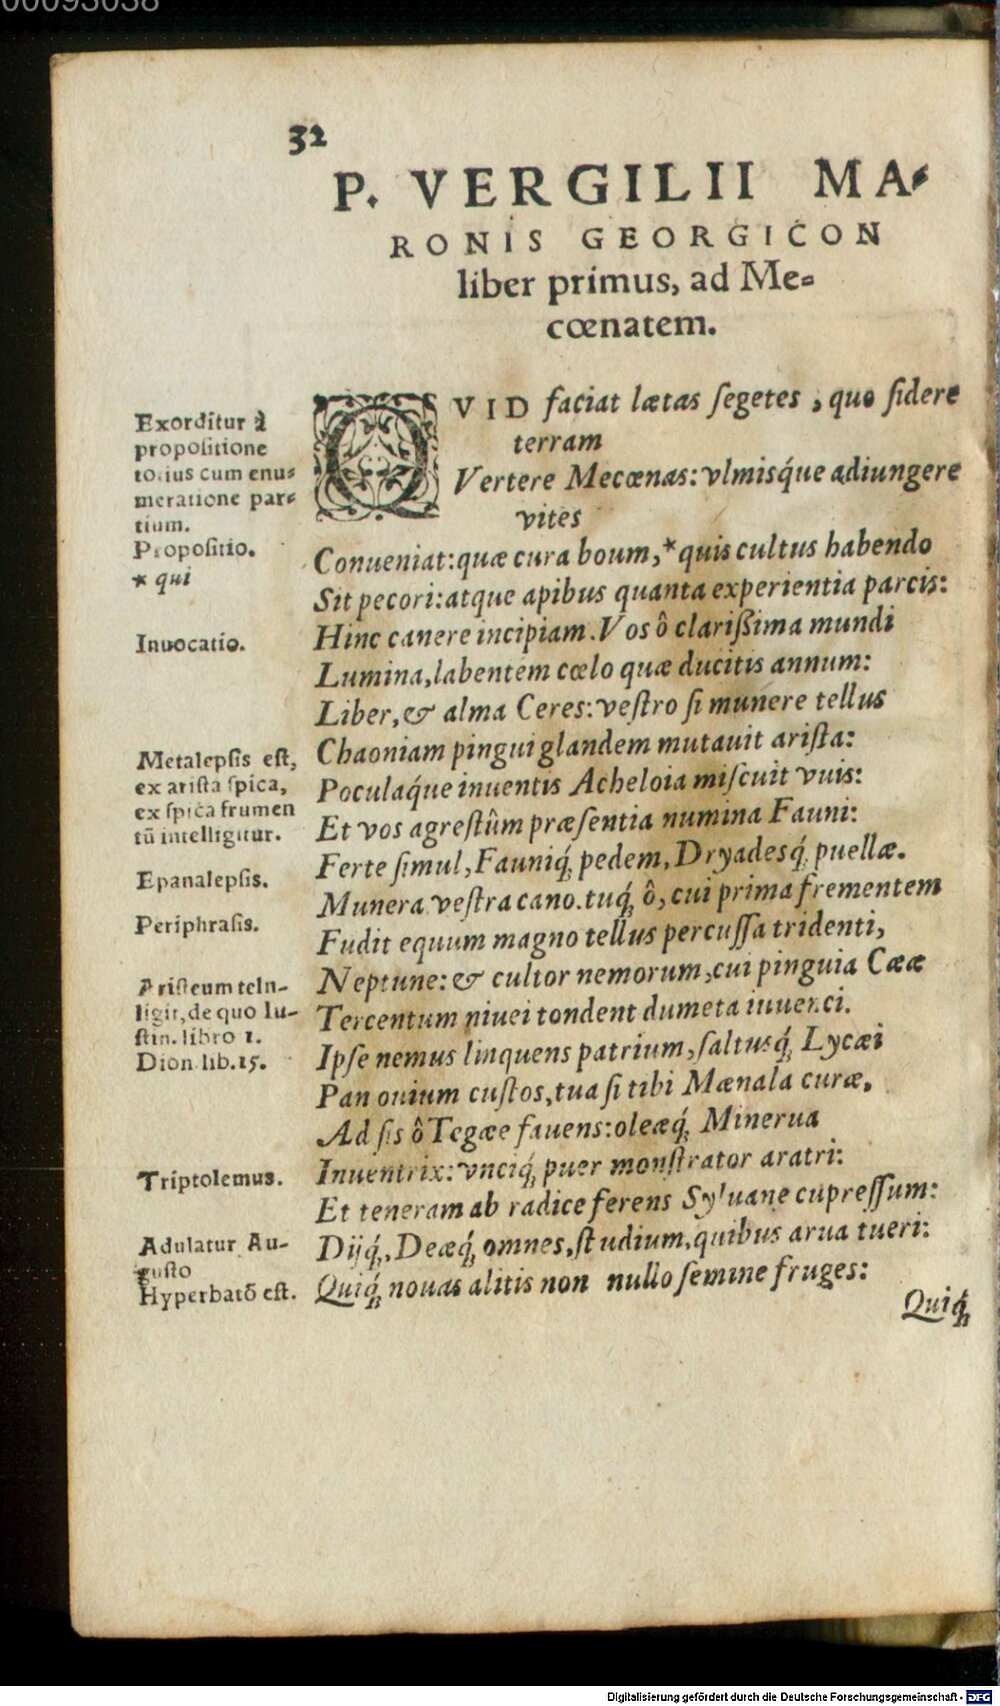 00093038
32
P. VERGILII MA-
RONIS GEORGICON
liber primus, ad Me-
cœnatem.
QVID faciat lætas ſegetes, quo ſidere
terram
Vertere Mecœnas: vlmisq́ue adiungere
vites
Conueniat: quæ cura boum, *quis cultus habendo
Sit pecori: atque apibus quanta experientia parcis:
Hinc canere incipiam. Vos ô clarißima mundi
Lumina, labentem cœlo quæ ducitis annum:
Liber, & alma Ceres: veſtro ſi munere tellus
Chaoniam pingui glandem mutauit ariſta:
Poculaq́ue inuentis Acheloia miſcuit vuis:
Et vos agreſtûm præſentia numina Fauni:
Ferte ſimul, Fauniq́; pedem, Dryadesq́; puellæ.
Munera veſtra cano. tuq́; ô, cui prima frementem
Fudit equum magno tellus percuſſa tridenti,
Neptune: & cultor nemorum, cui pinguia Cææ
Tercentum niuei tondent dumeta iuuenci.
Ipſe nemus linquens patrium, ſaltusq́; Lycæi
Pan ouium cuſtos, tua ſi tibi Mænala curæ,
Ad ſis ô Tegæe fauens: oleæq́; Minerua
Inuentrix: vnciq́; puer monſtrator aratri:
Et teneram ab radice ferens Syluane cupreſſum:
Dijq́;, Deæq́; omnes, ſtudium, quibus arua tueri:
Quiq́; nouas alitis non nullo ſemine fruges:
Quiq́;
Exorditur à
propoſitione
totius cum enu-
meratione par-
tium.
Propoſitio.
* qui
Inuocatio.
Metalepſis eſt,
ex ariſta ſpica,
ex ſpica frumen
tũ intelligitur.
Epanalepſis.
Periphraſis.
Ariſteum teln-
ligit, de quo Iu-
ſtin. libro 1.
Dion lib. 15.
Triptolemus.
Adulatur Au-
guſto
Hyperbatõ eſt.
Digitalisierung gefördert durch die Deutsche Forschungsgemeinschaft - DFG